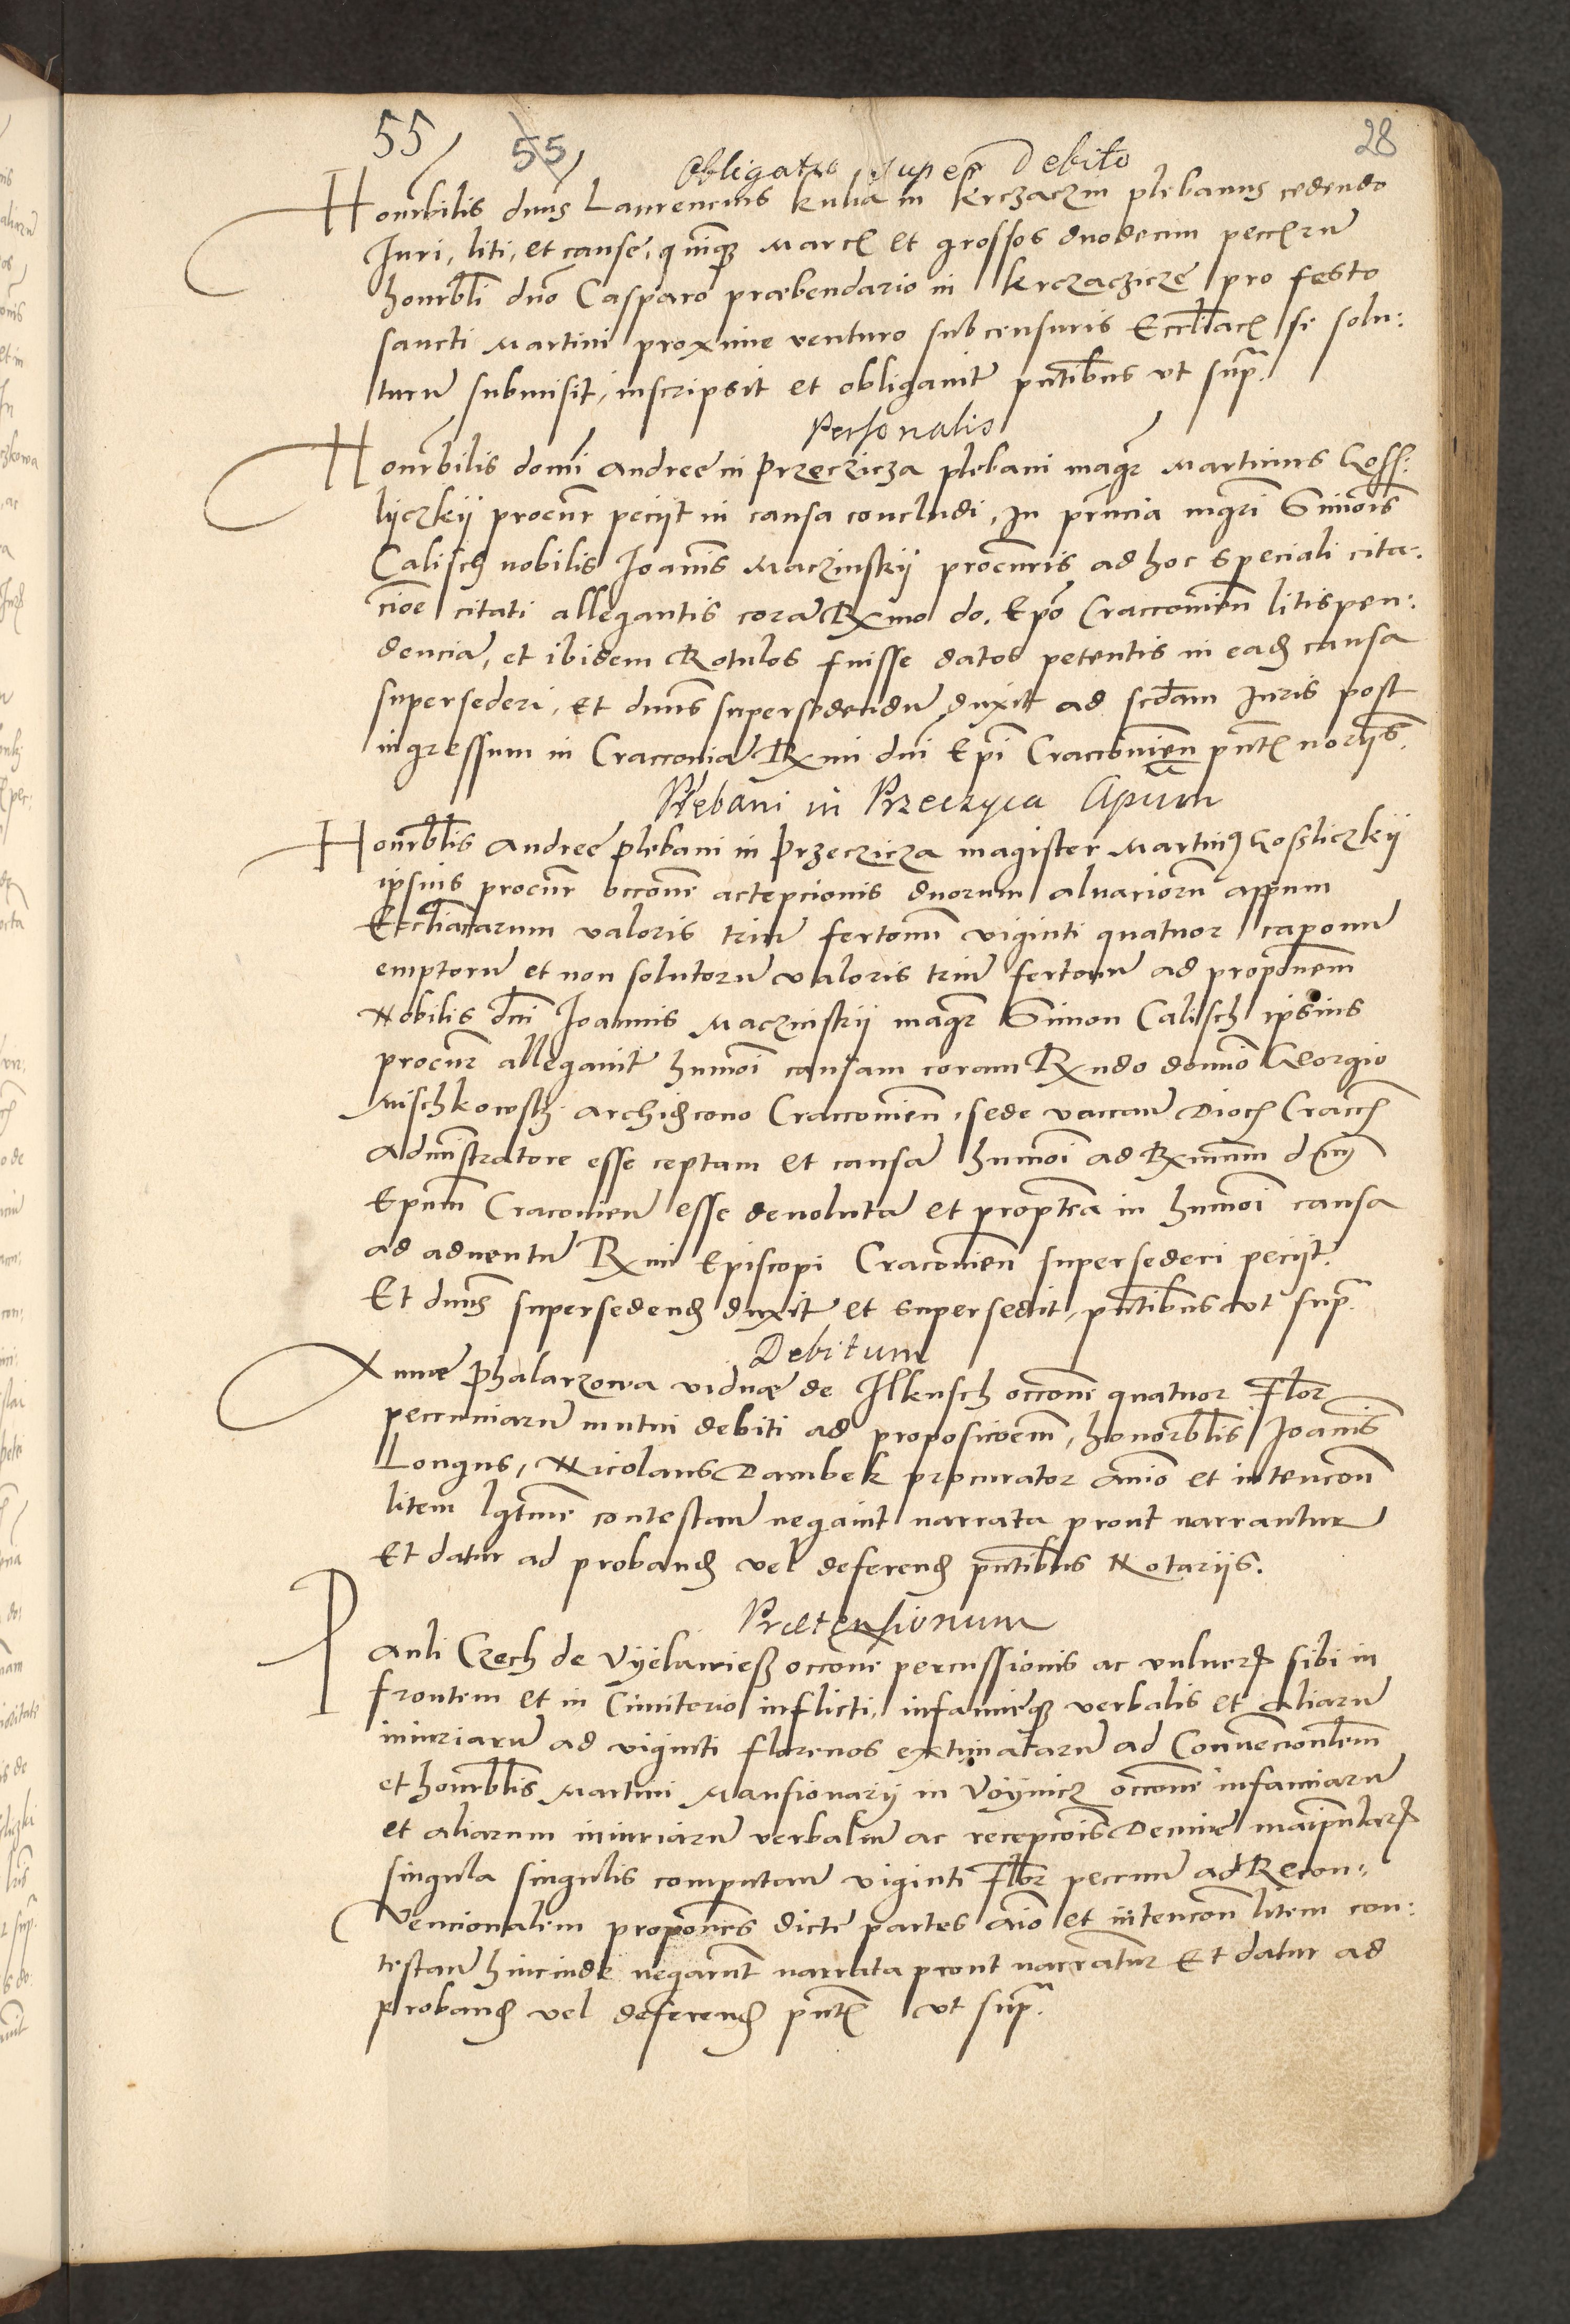 55 55 28
Obligatio super Debito
Honrbilis dnus Laurencius kulia in krczaczin plebanus cedendo
Juri, liti, et cause, quinque Marc et grossos duodecim peccuru
honrbli dno Casparo præbendario in krczaczicze pro festo
sancti Martini proxime venturo sub censuris Ecclliac se solu:
turu submisit, inscripsit et obligavit pntibus vt supra.
Personalis
Honrbilis domi Andree in Przeczicza plebani magr Martinus Goss:
lyczkij procur peciit in causa concludi, In prncia mgri Simois
Calisch nobilis Joannis Maczinskij procuris ad hoc speciali cita:
cioe citati allegantis cora Rxmo do. Epo Cracconien litispen:
dencia, et ibidem Rotulos fuisse datos petentis in ead causa
supersederi, et dnus supersedendu duxit ad scdam Juris post
ingressum in Cracconia Rxmi dni Epi Cracconien pnt noriis.
Plebani in Przeczyca Apum
Honrblis Andree plebani in Przeczicza magister Martinus Goszliczkij
ipsius procur occone acceptcionis duorum alvariorum appum
Ecclliacarum valoris triu fertonu viginti quatuor caponu
emptoru et non solutoru valoris triu fertonu ad propoonem
Nobilis dni Joannis Maczinskij magr Simon Calisch ipsius
procur allegavit humoi causam coram Rxndo domio Georgio
Mischkowsky archidcono Cracconien, sede vaccan Dioc Cracc
Administratore esse ceptam et causa humoi ad Rxmum dnum
Epum Craconien esse devoluta et proptrea in humoi causa
ad adventu Rxmi Episcopi Craconien supersederi peciit.
Et dnus supersedend duxit et supersedit, pntibus vt supra.
Debitum
Annæ Phalarzowa viduæ de Ilkusch occone quatuor Flor
peccuniaru mutui debiti ad proposicoem, honorblis Joannis
Longus, Nicolaus Dambek procurator animo et intencon
litem lgtime contestan negavit narrata prout narrantur
Et datur ad proband vel deferend pntibus Notariis.
Prætensionum
Pauli Czech de Vyelawiesz occone percussionis ac vulneris sibi in
frontem et in Cimiterio inflicti, infamieque verbalis et aliaru
iniuriaru ad viginti florenos extimataru ad Convencionlem
et honrblis Martini Mansionarij in Voynicz occone infamiaru
et aliarum iniuriaru verbaliu ac recepcois Decime
singula singulis computan viginti Flor peccun ad Recon:
vencionalem propones dicte partes aio et intencon litem con:
testan hincinde negarunt narrata prout narrantur Et datur ad
proband vel deferend pnt vt supra.